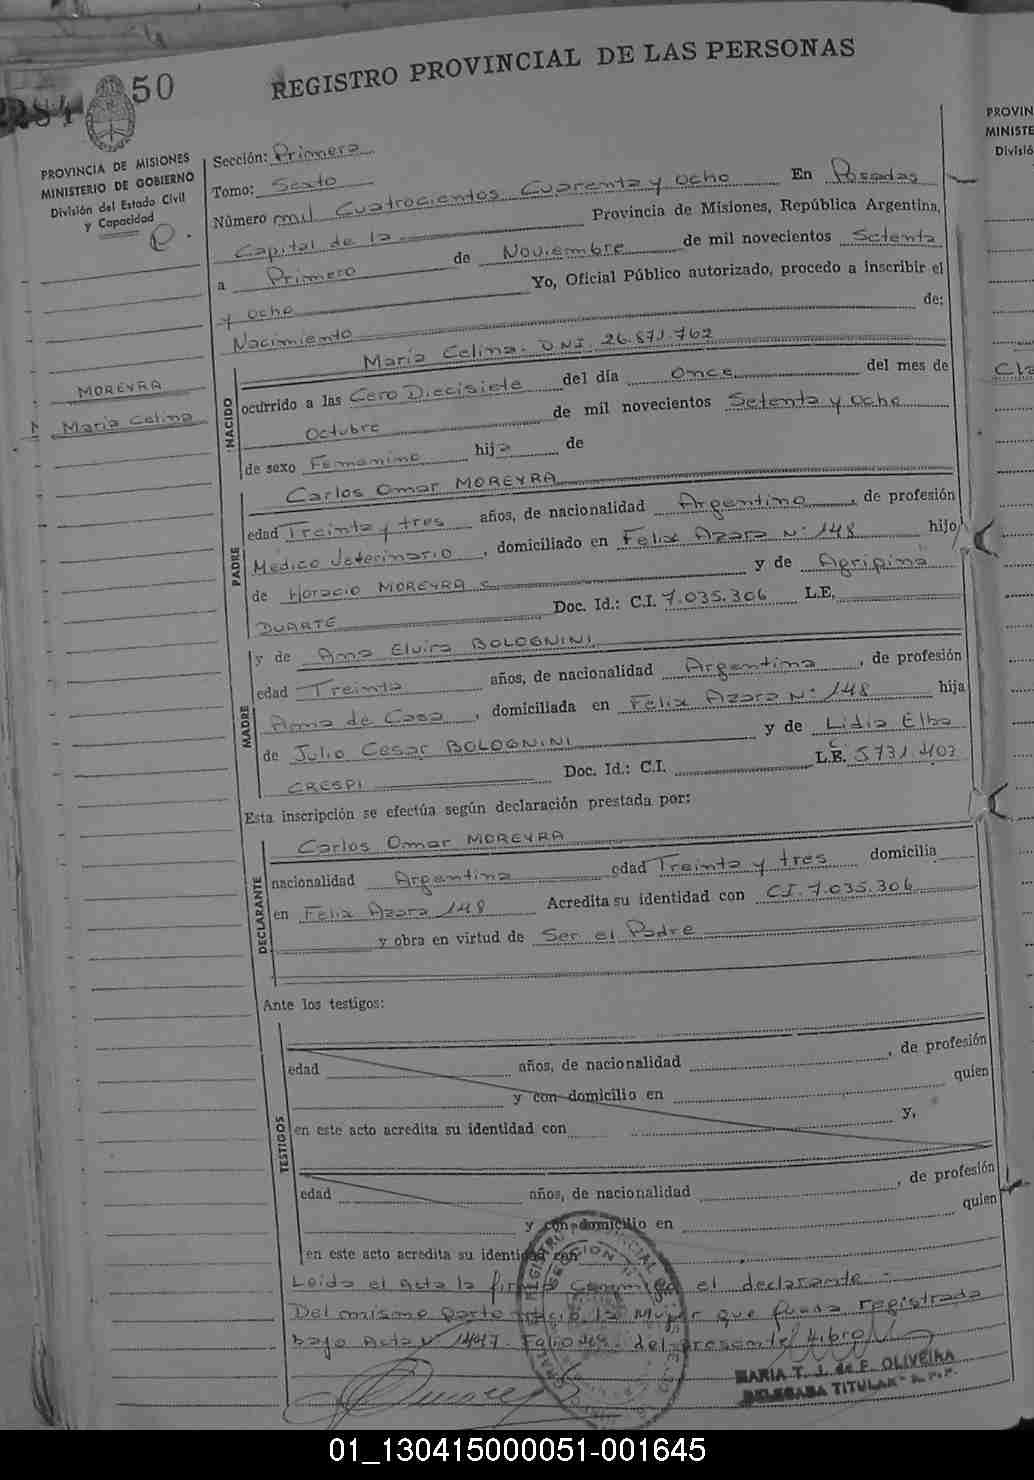 50
REGISTRO PROVINCIAL DE LAS PERSONAS
PROVINCIA DE MISIONES
MINISTERIO DE GOBIERNO
División del Estado Civil
y Capacidad
MOREYRA
Maria Celina
Sección: Primera
Tomo: Sexto
Número mil Cuatrocientos Cuarenta y ocho En Posadas
Capital de la Provincia de Misiones, República Argentina,
a Primero de Noviembre de mil novecientos Setenta
y ocho Yo, Oficial Público autorizado, procedo a inscribir el
Nacimiento de:
NACIDO
Maria Celina. D.N.I. 26.871.762
ocurrido a las Cero Diecisiete del día once del mes de
Octubre de mil novecientos Setenta y ocho
de sexo Femenino hija de
PADRE
Carlos Omar MOREYRA
edad Treinta y tres años, de nacionalidad Argentino, de profesión
Medico Veterinario, domiciliado en Felix Azara Nº 148 hijo
de Horacio MOREYRA y de Agripina
DUARTE Doc. Id.: C.I. 7.035.306 L.E.
MADRE
y de Ana Elvira BOLOGNINI
edad Treinta años, de nacionalidad Argentina, de profesión
Ama de Casa, domiciliada en Felix Azara Nº 148 hija
de Julio Cesar BOLOGNINI y de Lidia Elba
CRESPI Doc. Id.: C.I. L.C. 5731.403
Esta inscripción se efectúa según declaración prestada por:
DECLARANTE
Carlos Omar MOREYRA
nacionalidad Argentina edad Treinta y tres domicilia
en Felix Azara 148 Acredita su identidad con C.I. 7.035.306
y obra en virtud de Ser el Padre
Ante los testigos:
TESTIGOS
edad años, de nacionalidad, de profesión
y con domicilio en quien
en este acto acredita su identidad con y,
edad años, de nacionalidad, de profesión
y con domicilio en quien
en este acto acredita su identidad con
Leida el Acta la firma Conmigo el declarante
Del mismo parto nació la Mujer que fuera registrada
bajo Acta Nº 1447. Folio del presente Libro
MARIA T. J. de F. OLIVEIRA
DELEGADA TITULAR
PROVIN
MINISTE
Divisió
01_130415000051-001645